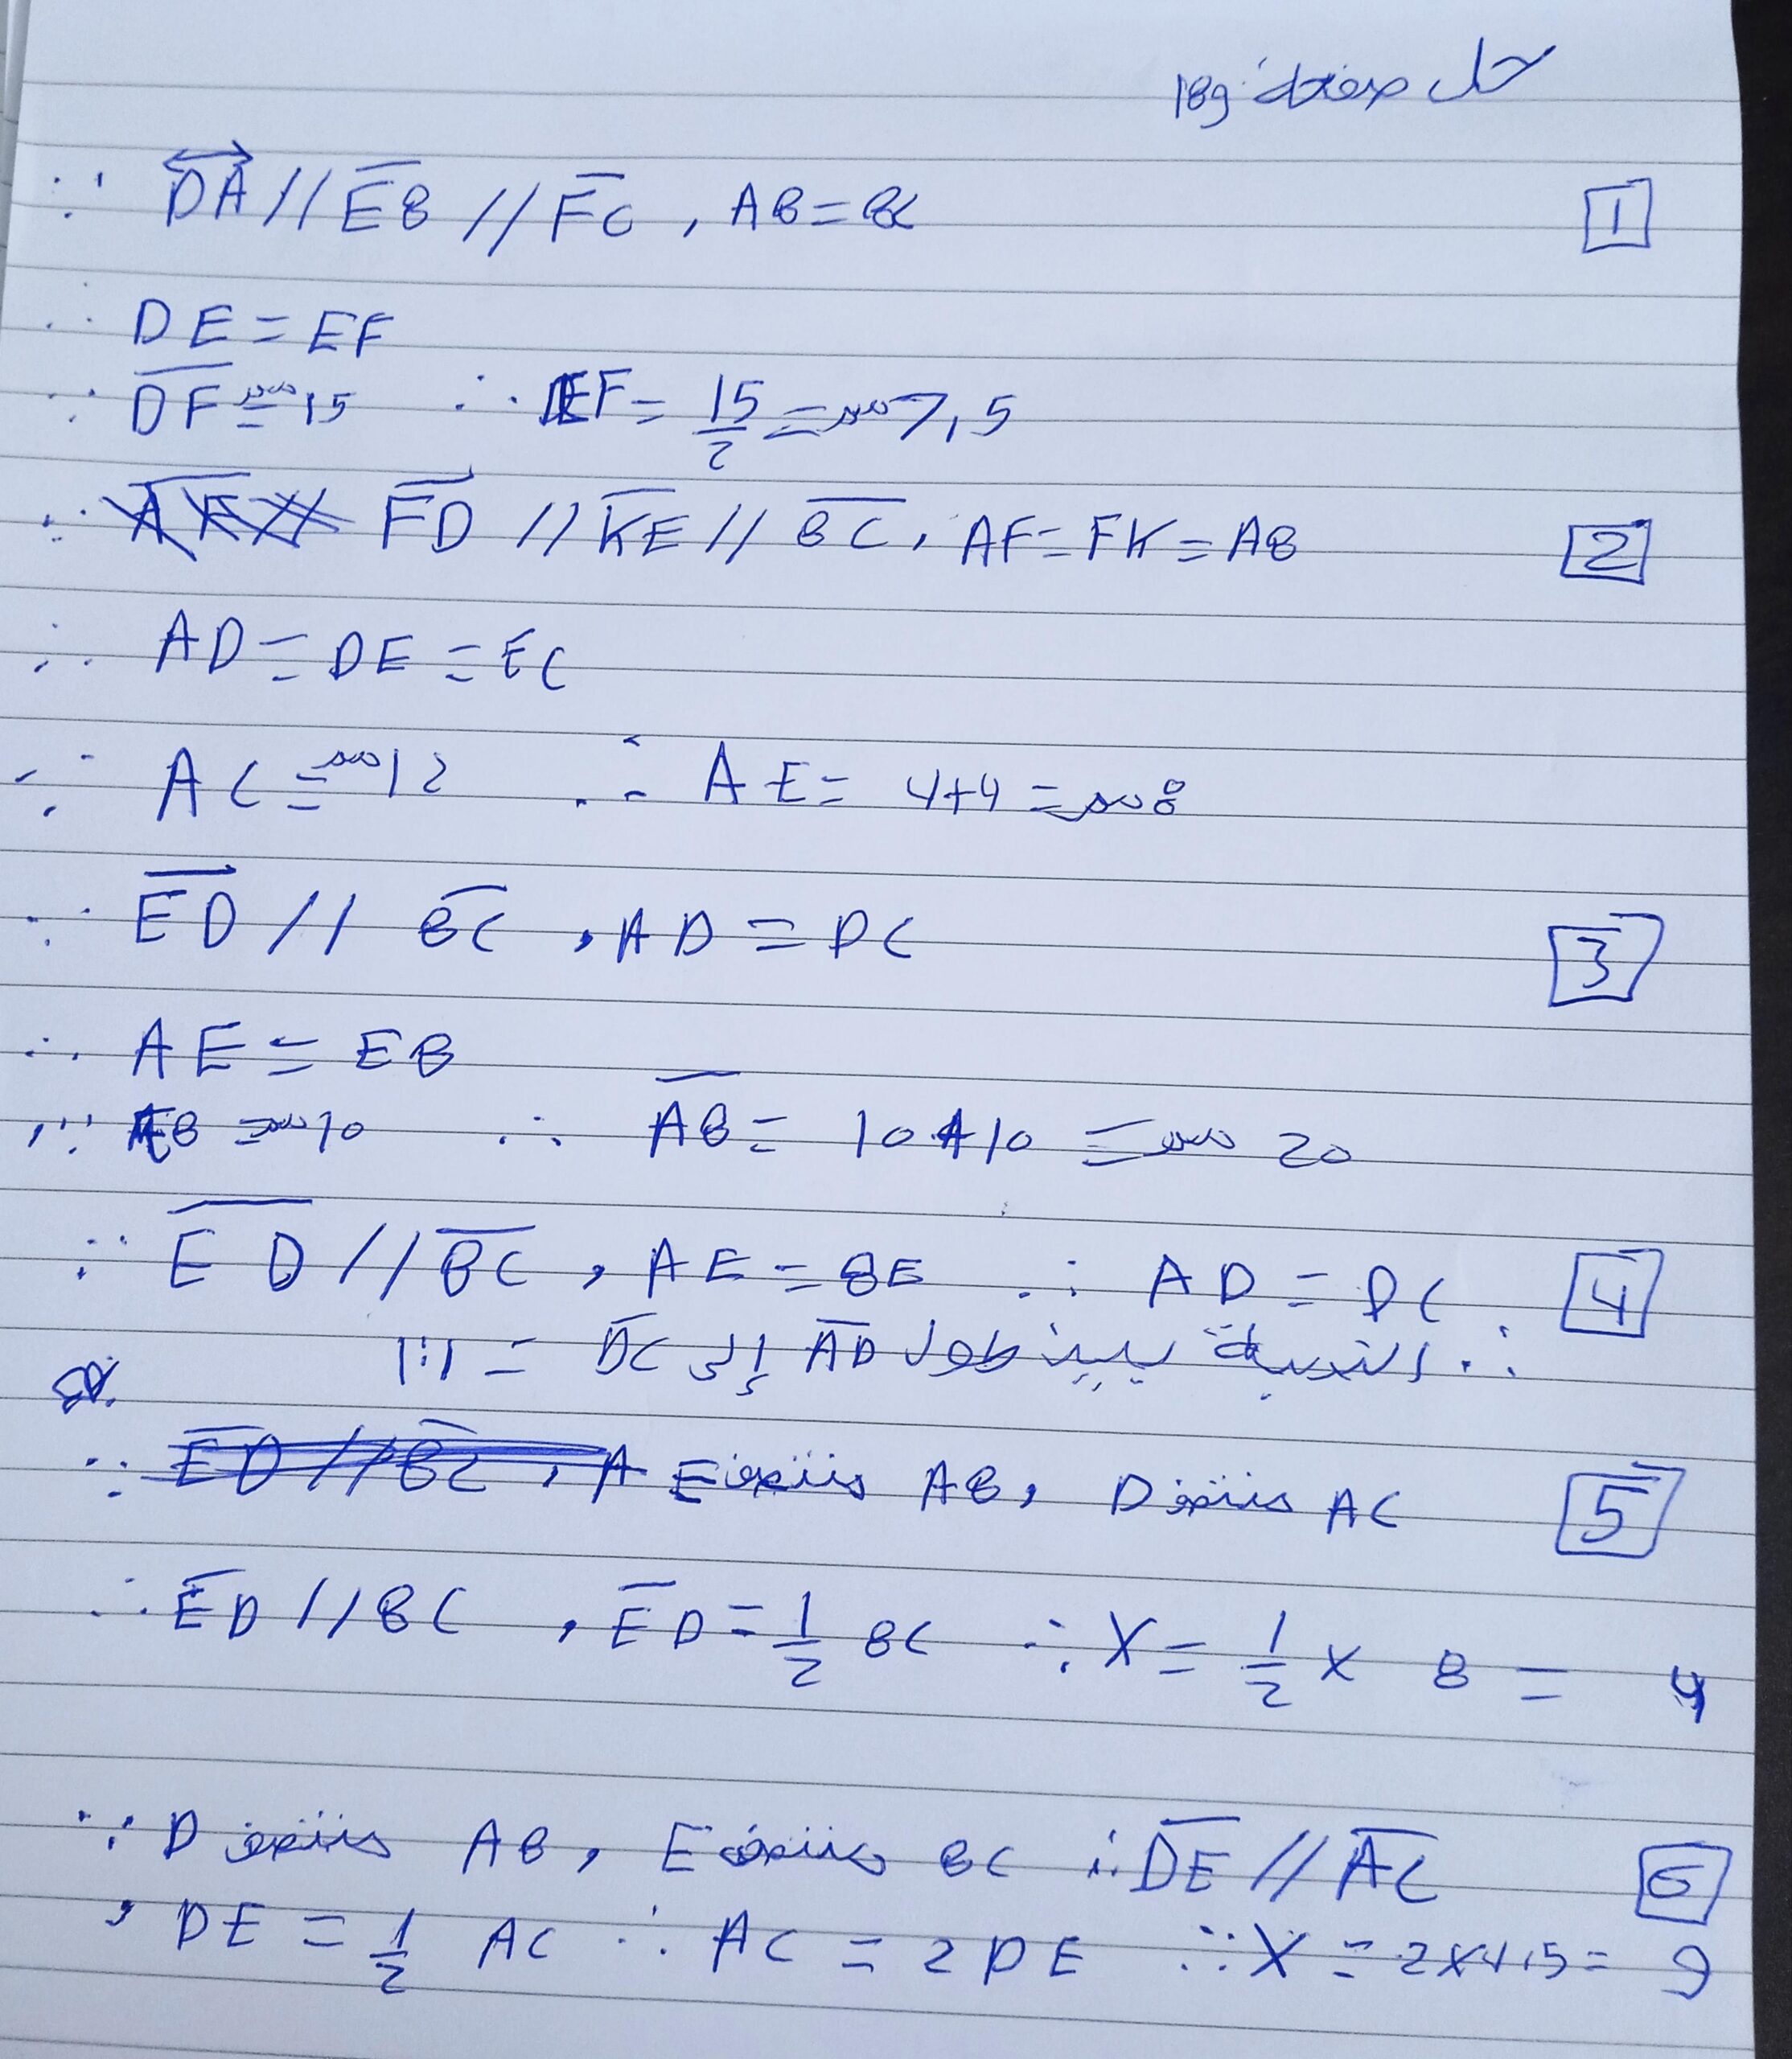 حل صفحة 189
[1] ∵ DA // EB // FC , AB = BC
∴ DE = EF
∵ DF = 15 سم ∴ EF = 15/2 = 7,5 سم
[2] ∵ FD // KE // BC , AF = FK = AB
∴ AD = DE = EC
∵ AC = 12 سم ∴ AE = 4+4 = 8 سم
[3] ∵ ED // BC , AD = DC
∴ AE = EB
∵ EB = 10 سم ∴ AB = 10+10 = 20 سم
[4] ∵ ED // BC , AE = BE ∴ AD = DC
∴ النسبة بين طول AD إلى DC = 1:1
[5] ∵ E منتصف AB , D منتصف AC
∴ ED // BC , ED = 1/2 BC ∴ X = 1/2 × 8 = 4
[6] ∵ D منتصف AB , E منتصف BC ∴ DE // AC
, DE = 1/2 AC ∴ AC = 2 DE ∴ X = 2×4,5 = 9